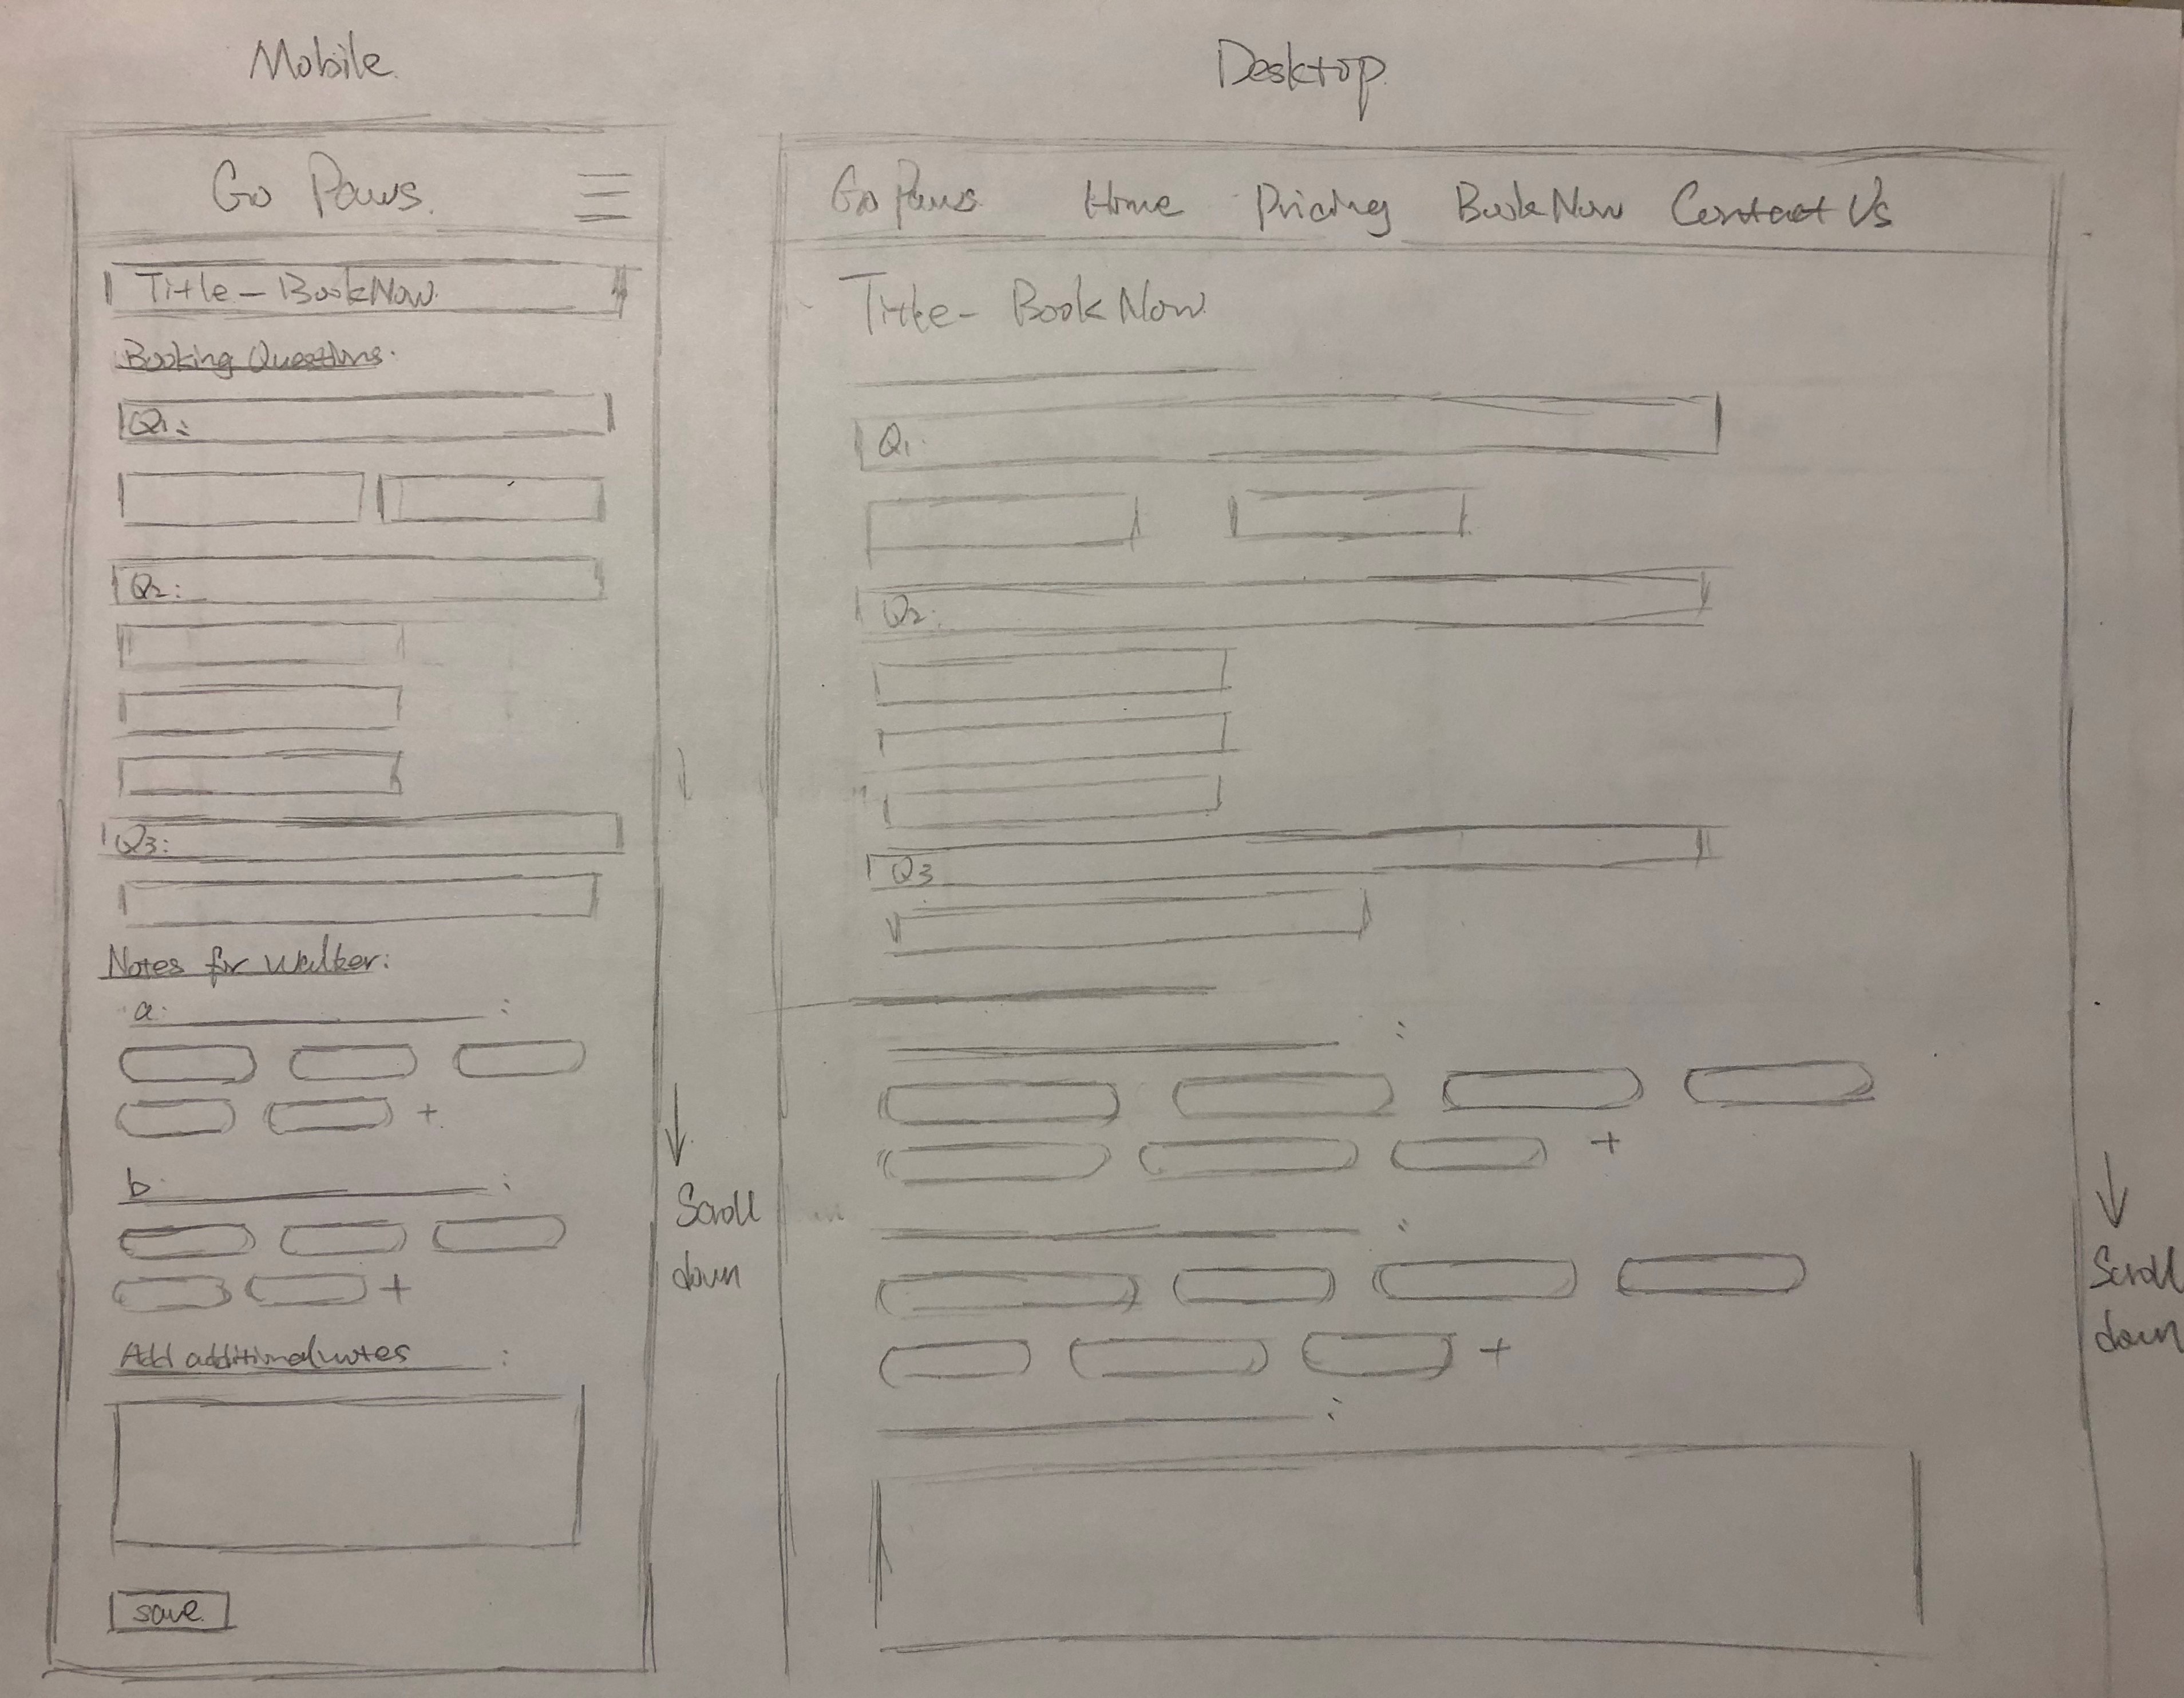 Mobile
Go Paws
Title - Book Now
Booking Questions:
Q1:
Q2:
Q3:
Notes for walker:
a. :
+
b. :
+
Add additional notes :
save
Scroll
down
Desktop
Go Paws Home Pricing Book Now Contact Us
Title - Book Now
Q1.
Q2.
Q3
:
+
:
+
:
Scroll
down